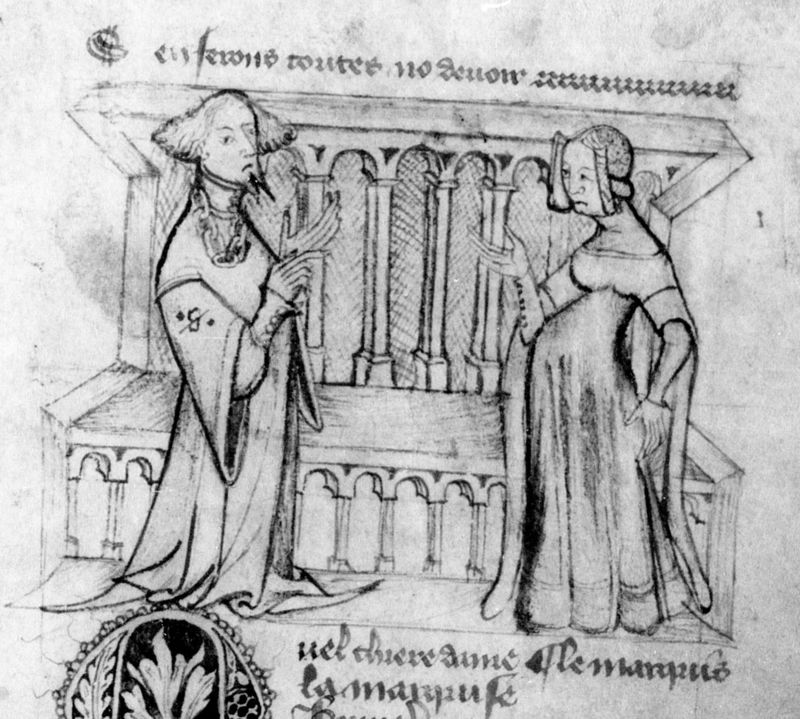 en ferons toutes no devoir
g
uel chiere dame Le marquis
la marquise